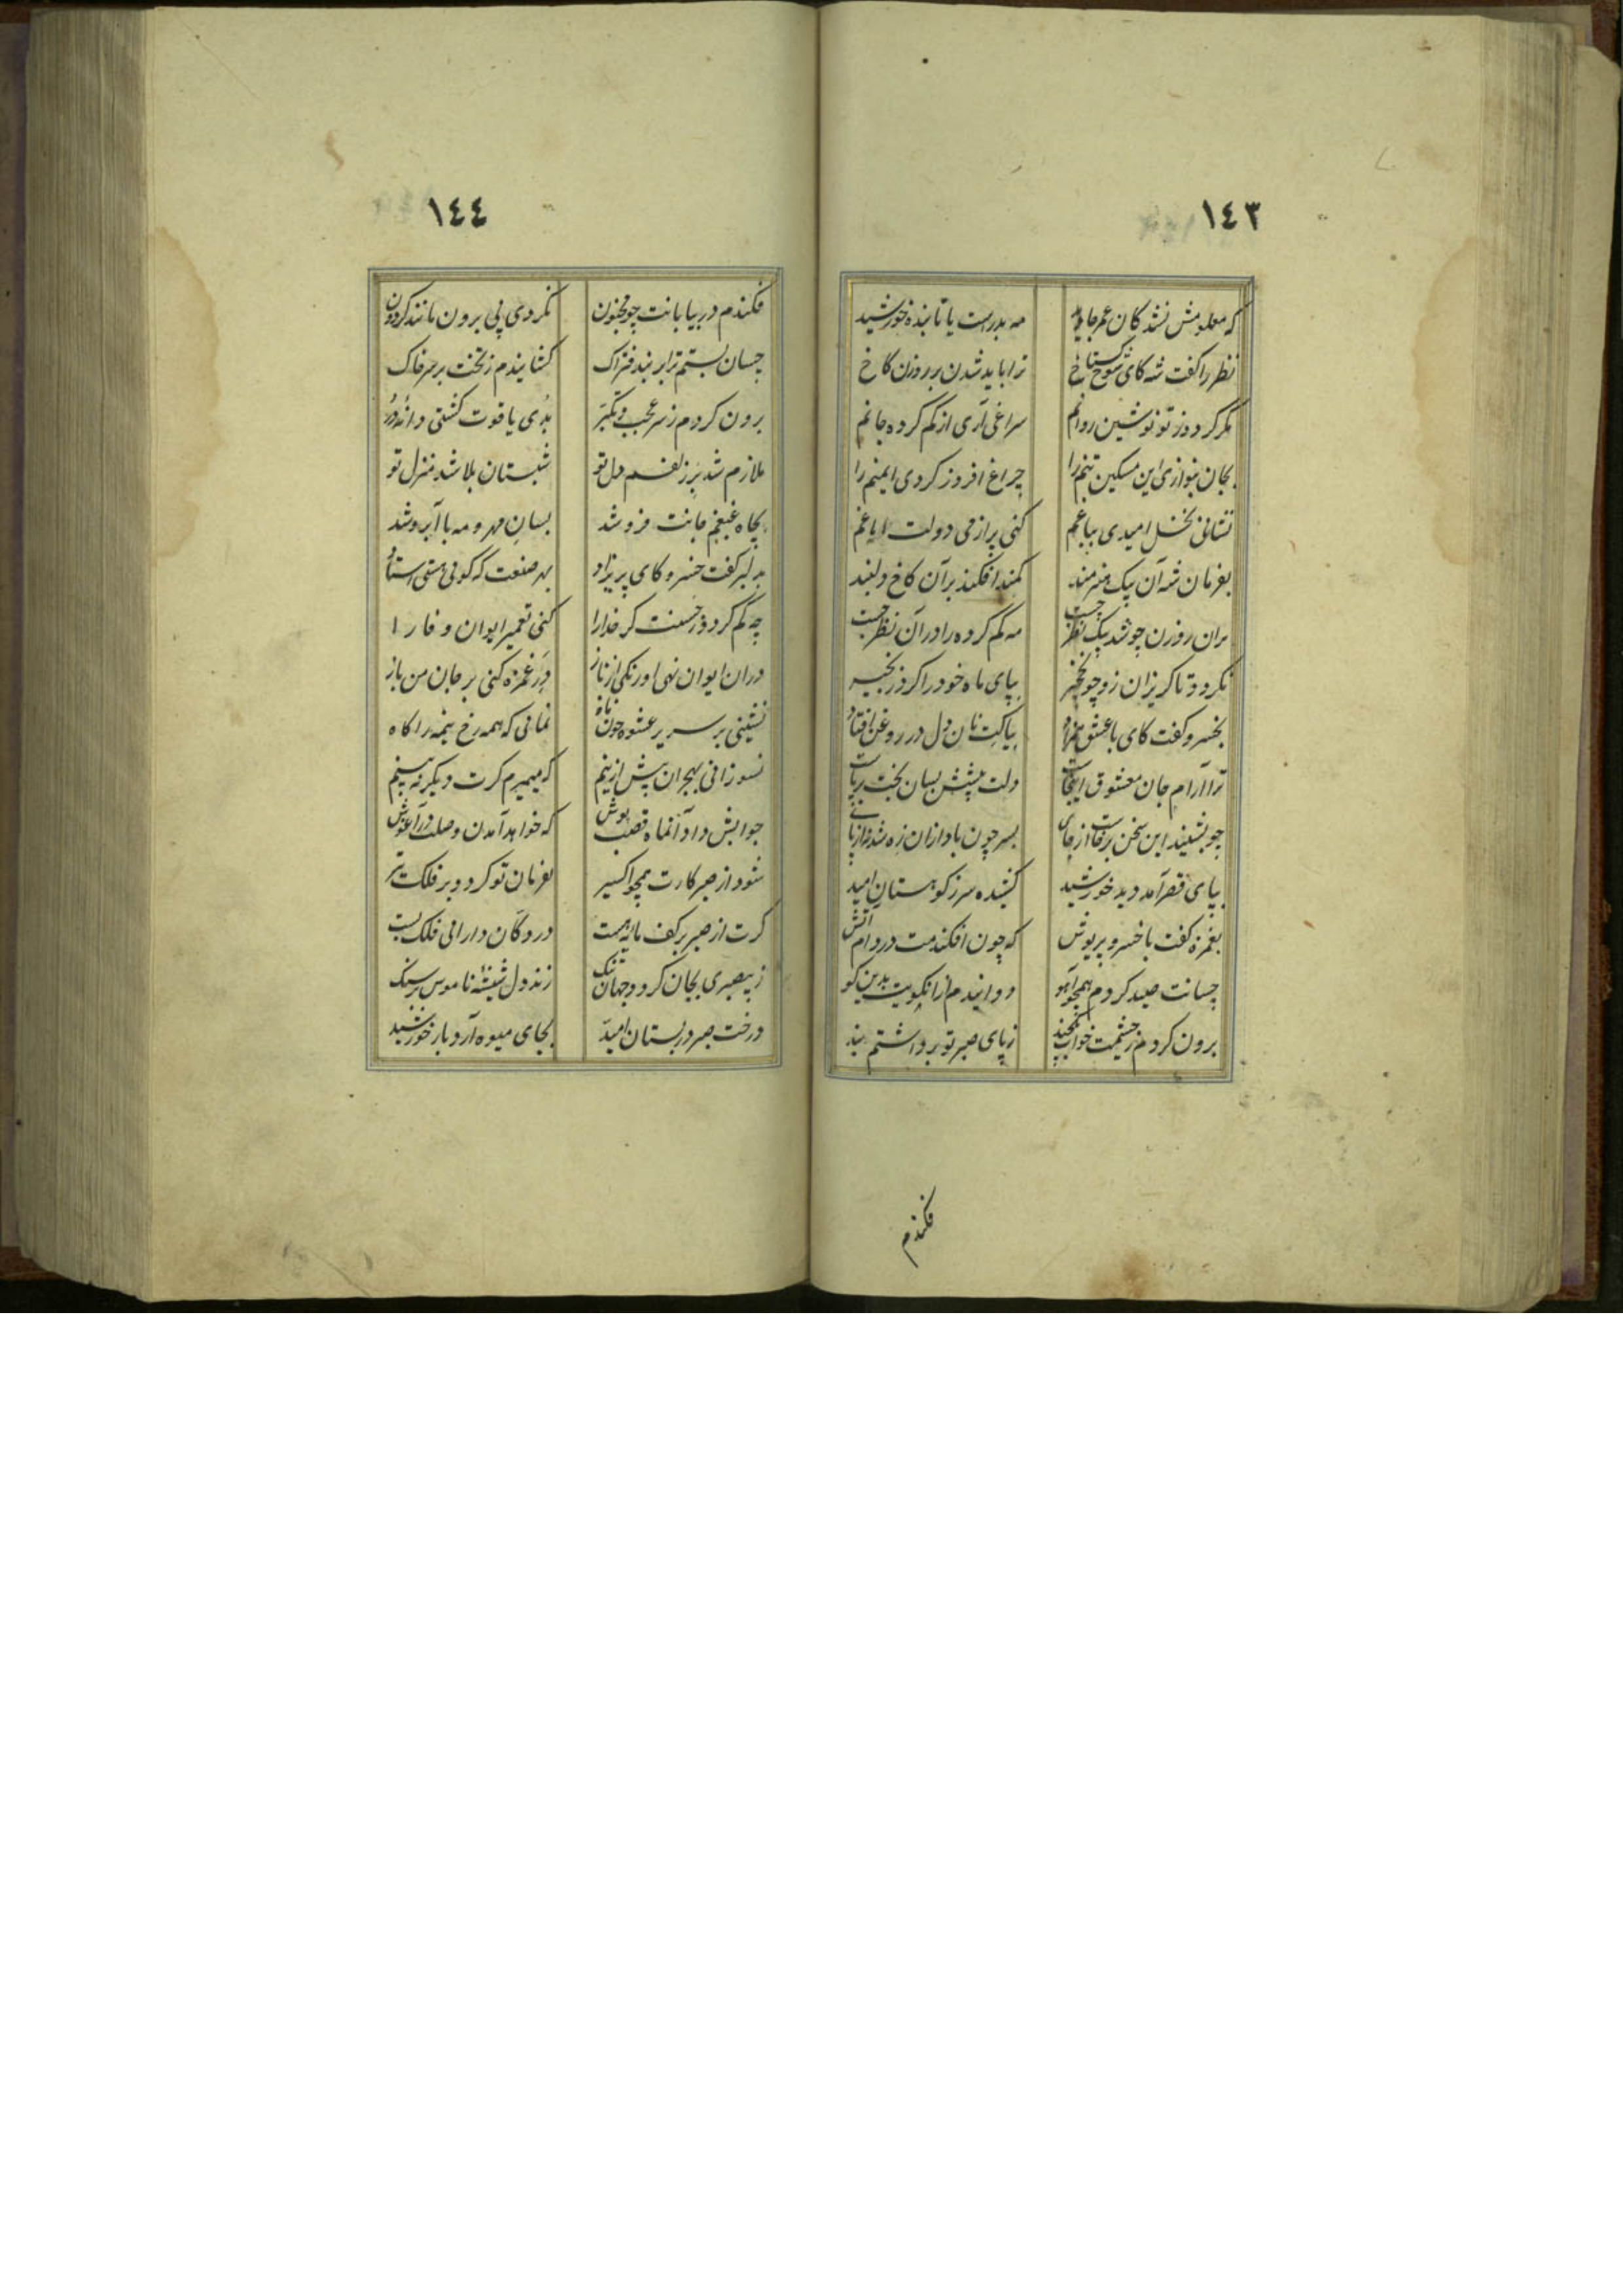 ١٤٣
که معلومش نشد کان عمر جاوید مه بدرست یا تابنده خورشید
نظر را گفت شه کای شوخ گستاخ ترا باید شدن بر روزن کاخ
مگر گردد ز تو نوشین روانم سراغی آری از گم کرده جانم
بجان بنوازی این مسکین تنم را چراغ افروز کردی ایمنم را
نشانی نخل امیدی بباغم کنی پر از می دولت ایاغم
بفرمان شه آن پیک هنرمند کمند افکند بر آن کاخ دلبند
بران روزن چو شد پیک نظر چست مه گم کرده را در آن نظر جست
نگردد تا گریزان زو چو نخچیر بپای ماه خود را کرد زنجیر
بخسرو گفت کای با عشق همزاد بیا کت نان دل در روغن افتاد
ترا آرام جان معشوق اینجاست دلت پیشش بسان بخت برپاست
چو بشنید این سخن برخاست از جای بسر چون باد ازان ره شد نه از پای
بپای قصر آمد دید خورشید کشیده سر ز کوهستان امید
بغمزه گفت با خسرو پریوش که چون افکندمت در دام آتش
چسانت صید کردم همچو آهو دوانیدم ازانکویت بدین کو
برون کردم ز چشمت خواب یکچند ز پای صبر تو برداشتم بند
فکندم
١٤٤
فکندم در بیابانت چو مجنون نکردی پی برون مانند گردون
چسان بستم ترا بر بند فتراک کشانیدم ز تختت بر سر خاک
برون کردم ز سر عجب و تکبر بدی یاقوت گشتی دانه در
ملازم شد بر زلفم دل تو شبستان بلا شد منزل تو
بچاه غبغبم جانت فرو شد بسان مهر و مه با آبرو شد
به دلبر گفت خسرو کای پریزاد بهر صنعت که گوئی هستی استاد
چه کم گردد ز حسنت گر خدارا کنی تعمیر ایوان وفا را
دران ایوان نهی اورنگی از ناز در غمزه کنی بر جان من باز
نشینی بر سریر عشوه چون ماه نمائی که همه رخ نیمه را گاه
نسوزانی بهجران پیش ازینم که میمیرم گرت دیگر نه بینم
جوابش داد آنماه قصب پوش که خواهد آمدن وصلت در آغوش
شود از صبر کارت همچو اکسیر بفرمان تو گردد بر فلک تیر
گرت از صبر بر کف مایه هست در دکان دارائی فلک بست
ز بیصبری بجان گردد جهان تنگ زند دل شیشه ناموس بر سنگ
درخت صبر در بستان امید بجای میوه آرد بار خورشید